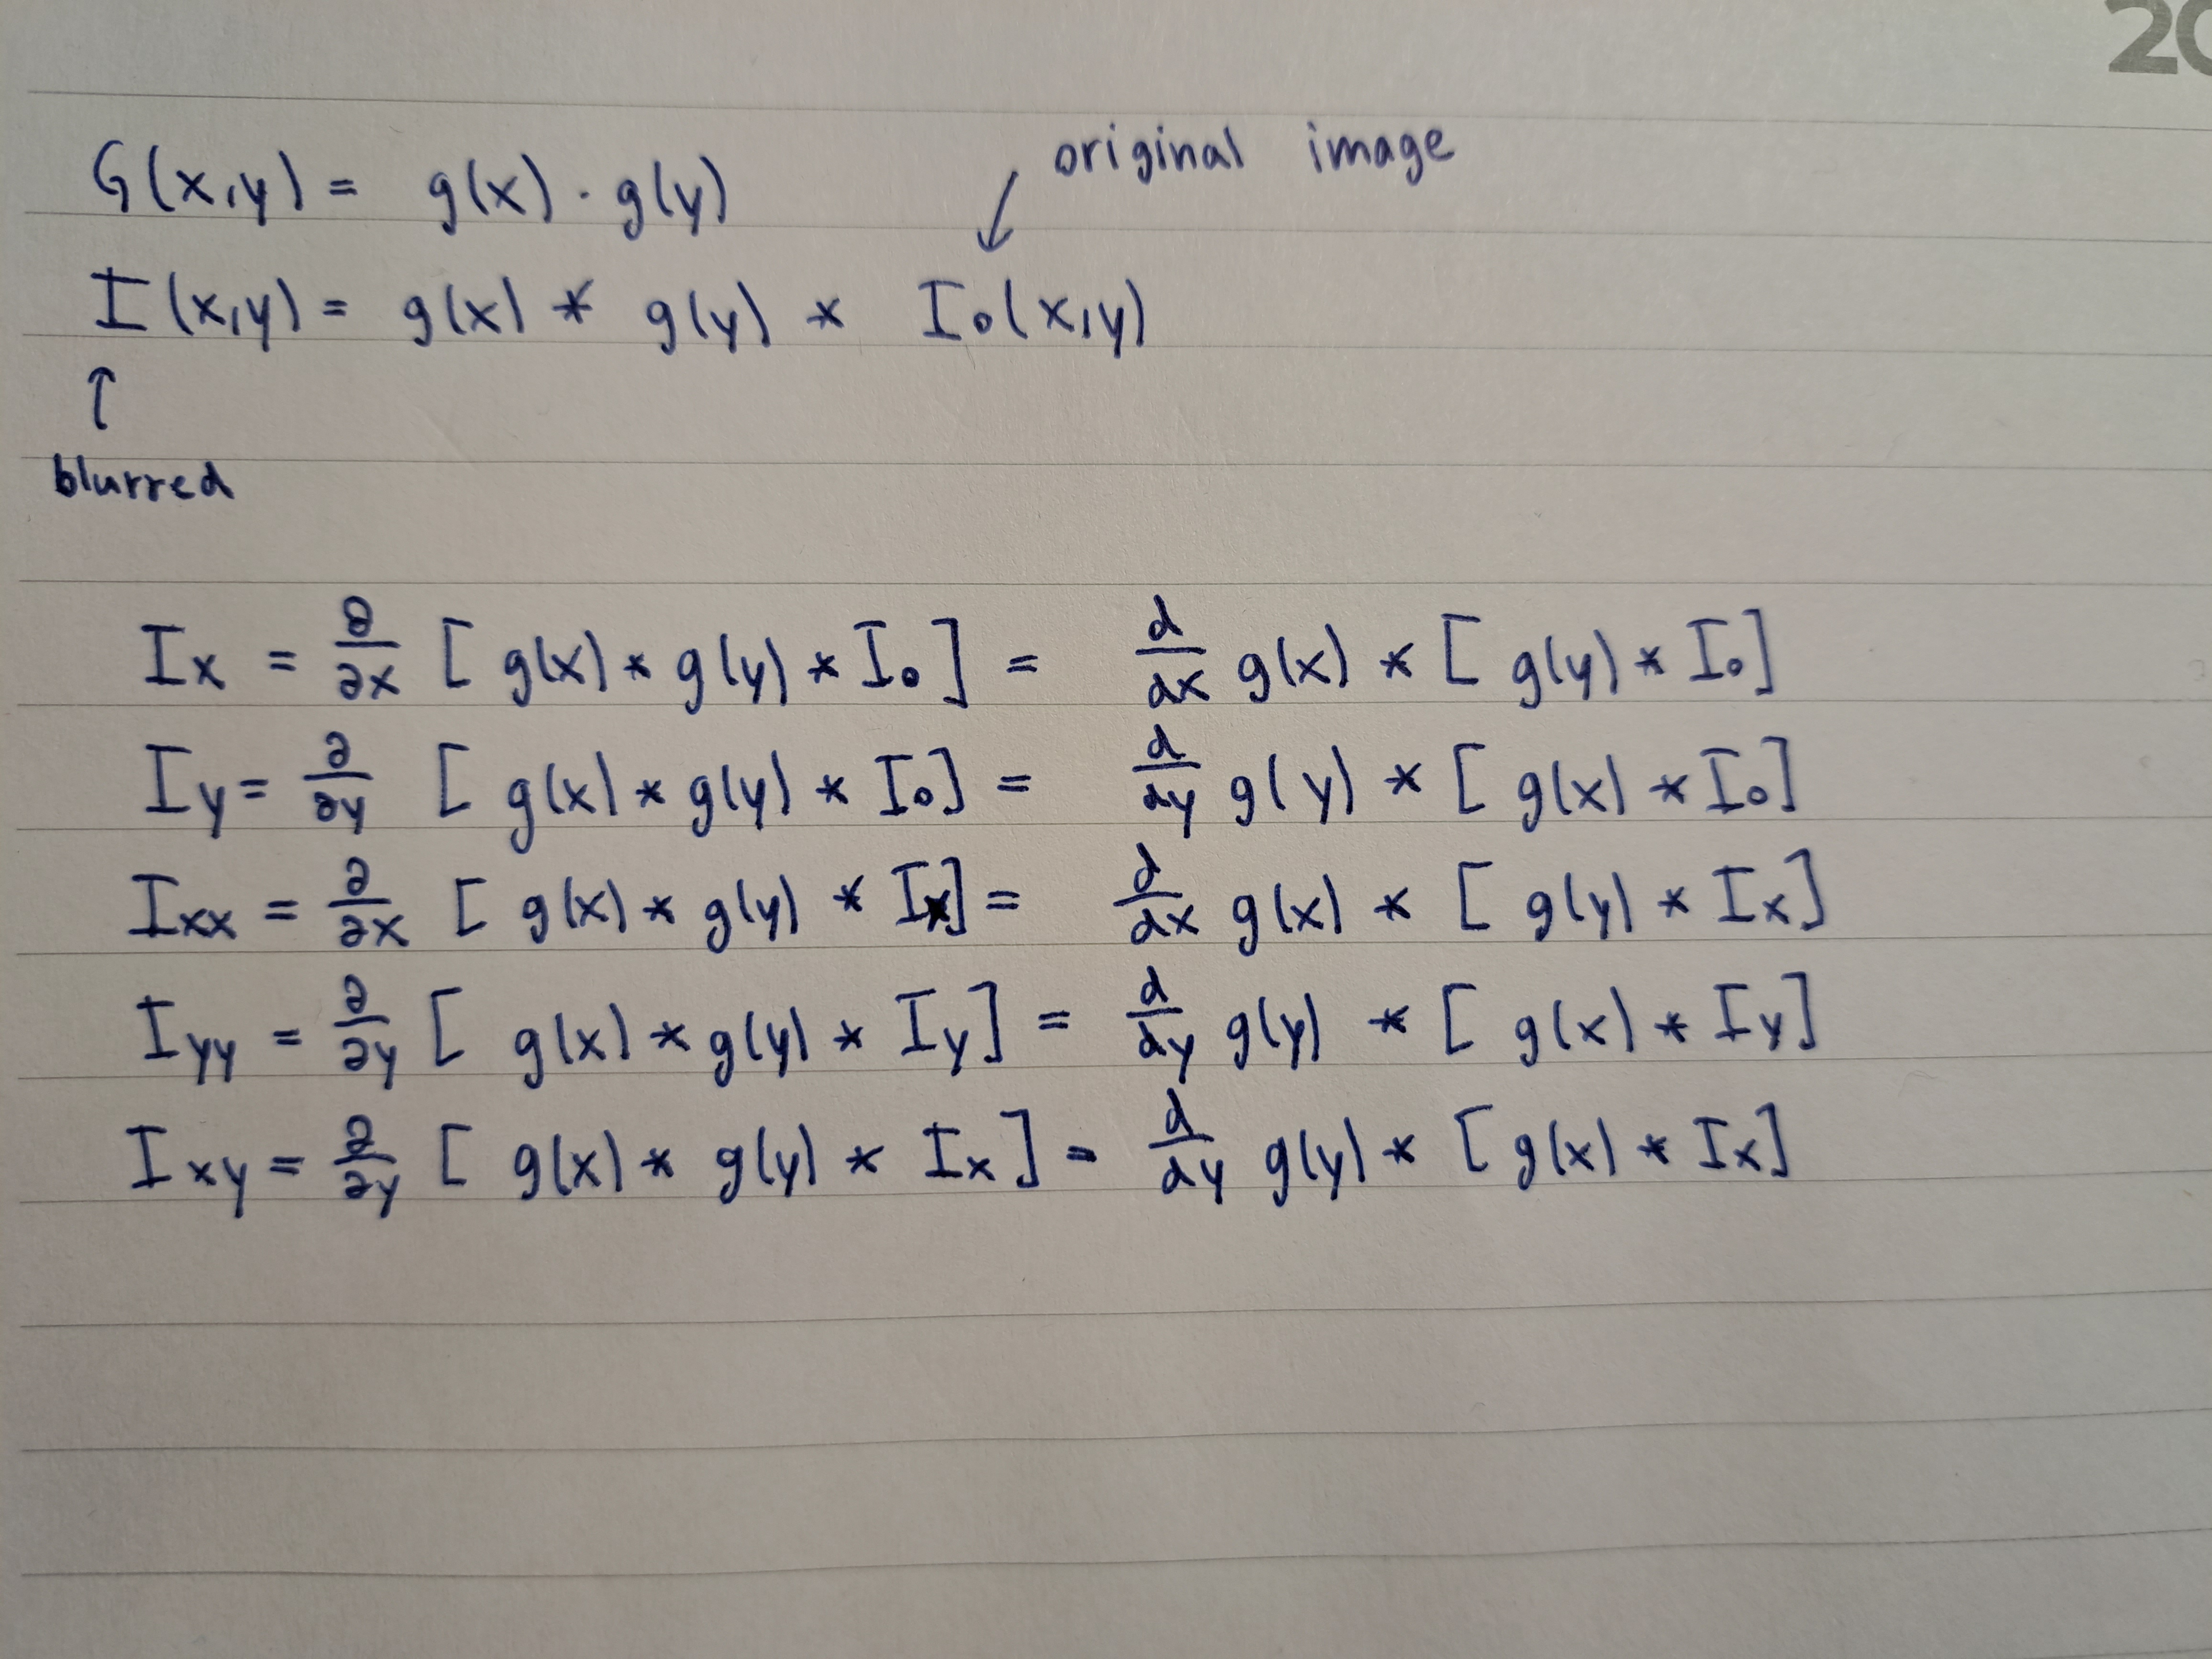 20
original image
G(x,y) = g(x) · g(y)
I(x,y) = g(x) * g(y) * I₀(x,y)
↑
blurred
Ix = ∂/∂x [ g(x) * g(y) * I₀ ] = d/dx g(x) * [ g(y) * I₀ ]
Iy = ∂/∂y [ g(x) * g(y) * I₀ ] = d/dy g(y) * [ g(x) * I₀ ]
Ixx = ∂/∂x [ g(x) * g(y) * Ix ] = d/dx g(x) * [ g(y) * Ix ]
Iyy = ∂/∂y [ g(x) * g(y) * Iy ] = d/dy g(y) * [ g(x) * Iy ]
Ixy = ∂/∂y [ g(x) * g(y) * Ix ] = d/dy g(y) * [ g(x) * Ix ]